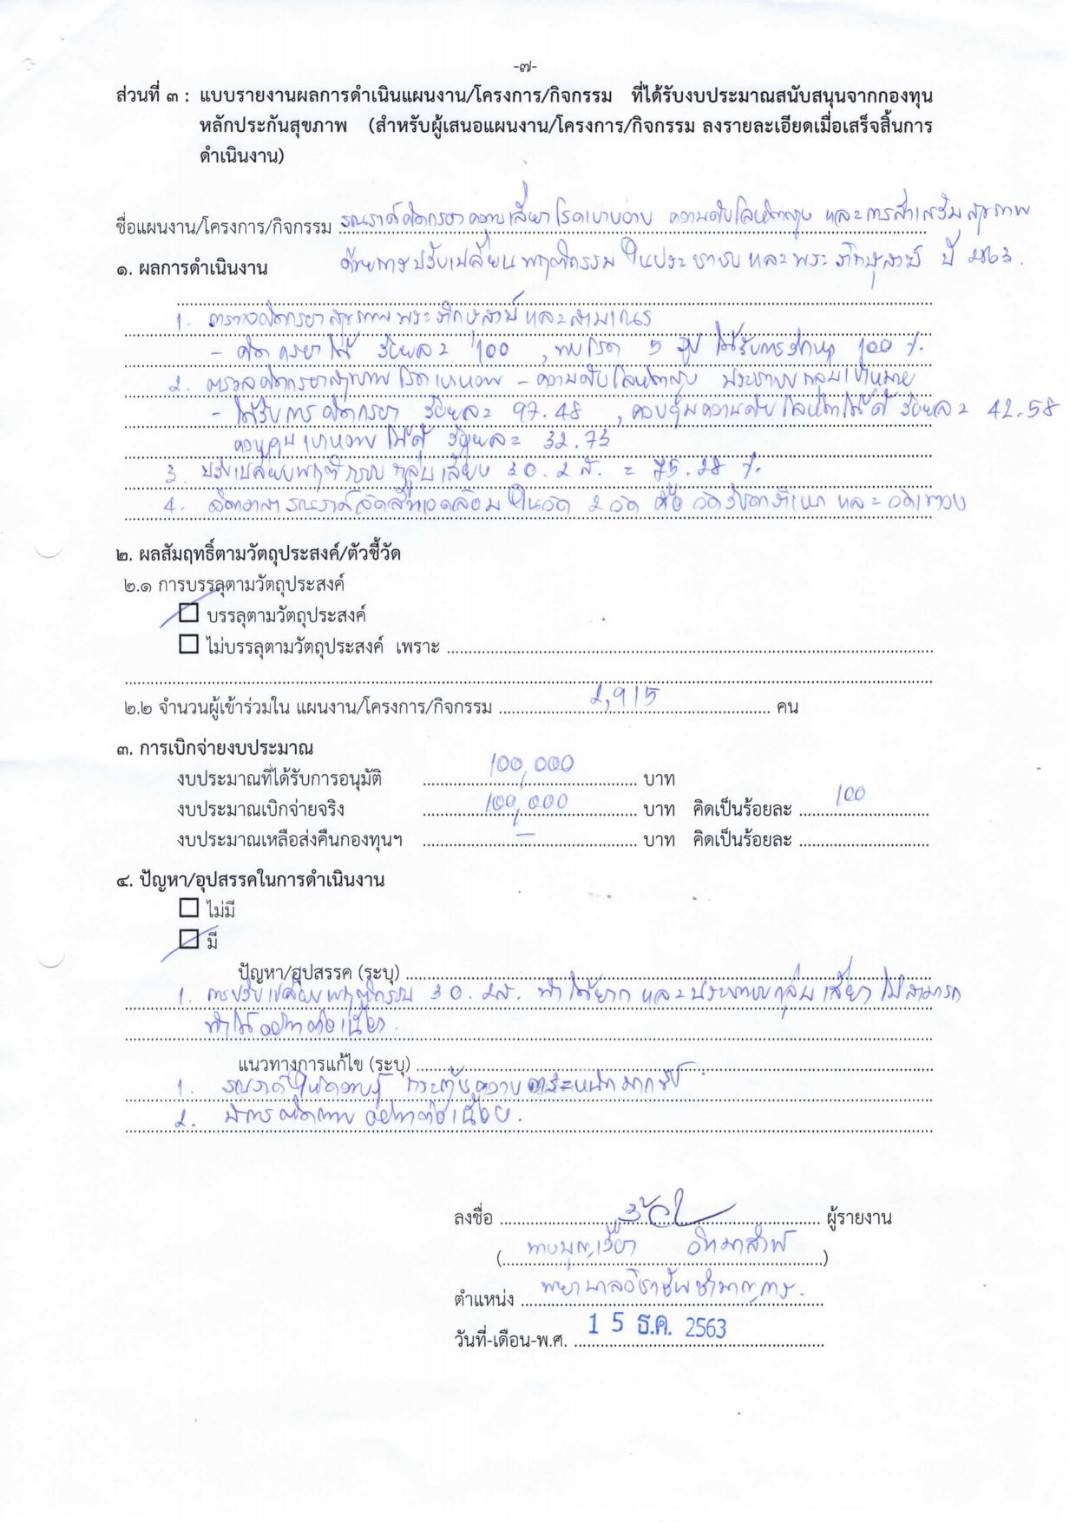 -๗-
ส่วนที่ ๓ : แบบรายงานผลการดำเนินแผนงาน/โครงการ/กิจกรรม ที่ได้รับงบประมาณสนับสนุนจากกองทุน
หลักประกันสุขภาพ (สำหรับผู้เสนอแผนงาน/โครงการ/กิจกรรม ลงรายละเอียดเมื่อเสร็จสิ้นการ
ดำเนินงาน)
ชื่อแผนงาน/โครงการ/กิจกรรม รณรงค์คัดกรองความเสี่ยงโรคเบาหวาน ความดันโลหิตสูง และการส่งเสริมสุขภาพ
ด้วยการปรับเปลี่ยนพฤติกรรม ในประชาชน และพระภิกษุสงฆ์ ปี 2563.
๑. ผลการดำเนินงาน
1. ตรวจคัดกรองสุขภาพพระภิกษุสงฆ์และสามเณร
- คัดกรองได้ ร้อยละ 100 , พบโรค 5 รูป ได้รับการรักษา 100 %
2. ตรวจคัดกรองสุขภาพ โรคเบาหวาน - ความดันโลหิตสูง ประชาชนกลุ่มเป้าหมาย
- ได้รับการคัดกรอง ร้อยละ 97.48 , ควบคุมความดันโลหิตได้ดี ร้อยละ 42.58
ควบคุมเบาหวานได้ดี ร้อยละ 32.73
3. ปรับเปลี่ยนพฤติกรรม กลุ่มเสี่ยง 3 อ. 2 ส. = 75.28 %
4. จิตอาสา รณรงค์จัดสิ่งแวดล้อม ในวัด 2 วัด คือ และ
๒. ผลสัมฤทธิ์ตามวัตถุประสงค์/ตัวชี้วัด
๒.๑ การบรรลุตามวัตถุประสงค์
บรรลุตามวัตถุประสงค์
ไม่บรรลุตามวัตถุประสงค์ เพราะ
๒.๒ จำนวนผู้เข้าร่วมใน แผนงาน/โครงการ/กิจกรรม 2,915 คน
๓. การเบิกจ่ายงบประมาณ
งบประมาณที่ได้รับการอนุมัติ 100,000 บาท
งบประมาณเบิกจ่ายจริง 100,000 บาท คิดเป็นร้อยละ 100
งบประมาณเหลือส่งคืนกองทุนฯ - บาท คิดเป็นร้อยละ
๔. ปัญหา/อุปสรรคในการดำเนินงาน
ไม่มี
มี
ปัญหา/อุปสรรค (ระบุ)
1. การปรับเปลี่ยนพฤติกรรม 3 อ. 2 ส. ทำได้ยาก และประชาชนกลุ่มเสี่ยง ไม่สามารถ
ทำได้อย่างต่อเนื่อง.
แนวทางการแก้ไข (ระบุ)
1. รณรงค์ให้ความรู้ กระตุ้นความตระหนักมากขึ้น
2. มีการติดตาม อย่างต่อเนื่อง.
ลงชื่อ ผู้รายงาน
ตำแหน่ง พยาบาลวิชาชีพชำนาญการ.
วันที่-เดือน-พ.ศ. 15 ธ.ค. 2563